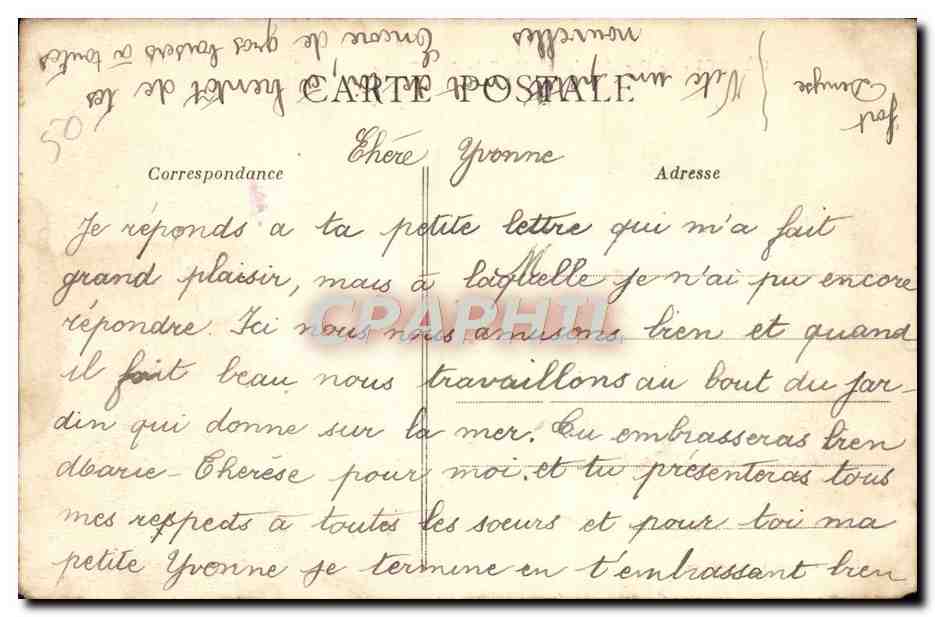 CARTE POSTALE
Chère Yvonne
Correspondance
Adresse
Je réponds a ta petite lettre qui m'a fait
grand plaisir, mais à laquelle je n'ai pu encore
répondre. Ici nous nous amusons bien et quand
il fait beau nous travaillons au bout du jar-
din qui donne sur la mer. Tu embrasseras bien
Marie-Thérèse pour moi, et tu présenteras tous
mes respeds à toutes les soeurs et pour toi ma
petite Yvonne je termine en t'embrassant bien
fort
Denyse
Vite un petit et à bientôt de tes
nouvelles Encore de gros baisers à toutes
CPAPHIL